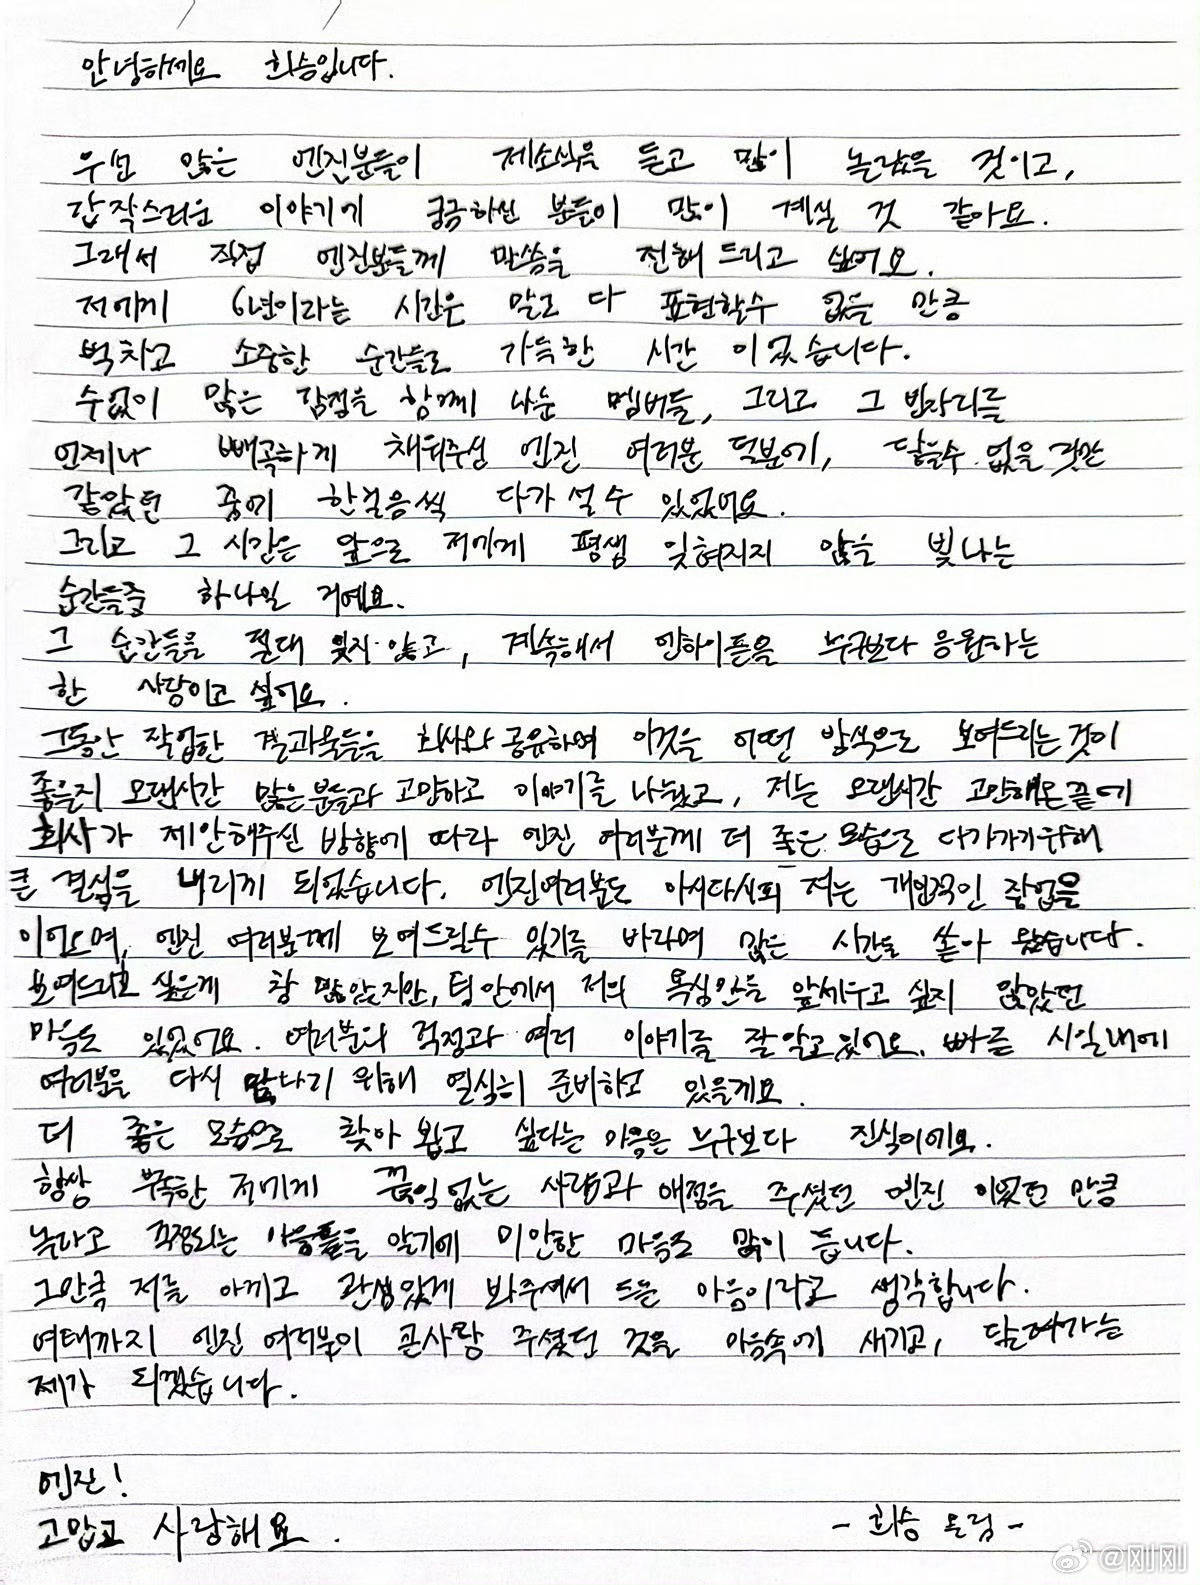 안녕하세요 희승입니다.
우선 많은 엔진분들이 제소식을 듣고 많이 놀랐을 것이고,
갑작스러운 이야기에 궁금하신 분들이 많이 계실 것 같아요.
그래서 직접 엔진분들께 말씀을 전해 드리고 싶어요.
저에게 6년이라는 시간은 말로 다 표현할수 없을 만큼
벅차고 소중한 순간들로 가득한 시간 이었습니다.
수없이 많은 감정을 함께 나눈 멤버들, 그리고 그 빈자리를
언제나 빼곡하게 채워주신 엔진 여러분 덕분에, 닿을수 없을 것만
같았던 꿈에 한걸음씩 다가 설 수 있었어요.
그리고 그 시간은 앞으로 저에게 평생 잊혀지지 않을 빛나는
순간들중 하나일 거예요.
그 순간들을 절대 잊지 않고, 계속해서 엔하이픈을 누구보다 응원하는
한 사람이고 싶어요.
그동안 작업한 결과물들을 회사와 공유하며 이것을 어떤 방식으로 보여드리는것이
좋을지 오랜시간 많은분들과 고민하고 이야기를 나눴고, 저는 오랜시간 고민해온끝에
회사가 제안해주신 방향에 따라 엔진 여러분께 더 좋은 모습으로 다가가기위해
큰 결심을 내리게 되었습니다. 엔진여러분도 아시다시피 저는 개인적인 작업을
이어오며, 엔진 여러분께 보여드릴수 있기를 바라며 많은 시간을 쏟아 왔습니다.
보여드리고 싶은게 참 많았지만, 팀 안에서 저의 욕심만을 앞세우고 싶지 않았던
마음도 있었어요. 여러분의 걱정과 여러 이야기를 잘 알고 있어요. 빠른 시일내에
여러분을 다시 만나기 위해 열심히 준비하고 있을게요.
더 좋은 모습으로 찾아 뵙고 싶다는 마음은 누구보다 진심이에요.
항상 부족한 저에게 끊임없는 사랑과 애정을 주셨던 엔진 이었던 만큼
놀라고 걱정되는 마음들을 알기에 미안한 마음도 많이 듭니다.
그만큼 저를 아끼고 관심있게 봐주셔서 드는 마음이라고 생각합니다.
여태까지 엔진 여러분이 큰사랑 주셨던 것을 마음속에 새기고, 달려가는
제가 되겠습니다.
엔진!
고맙고 사랑해요.
- 희승 드림 -
@刚刚